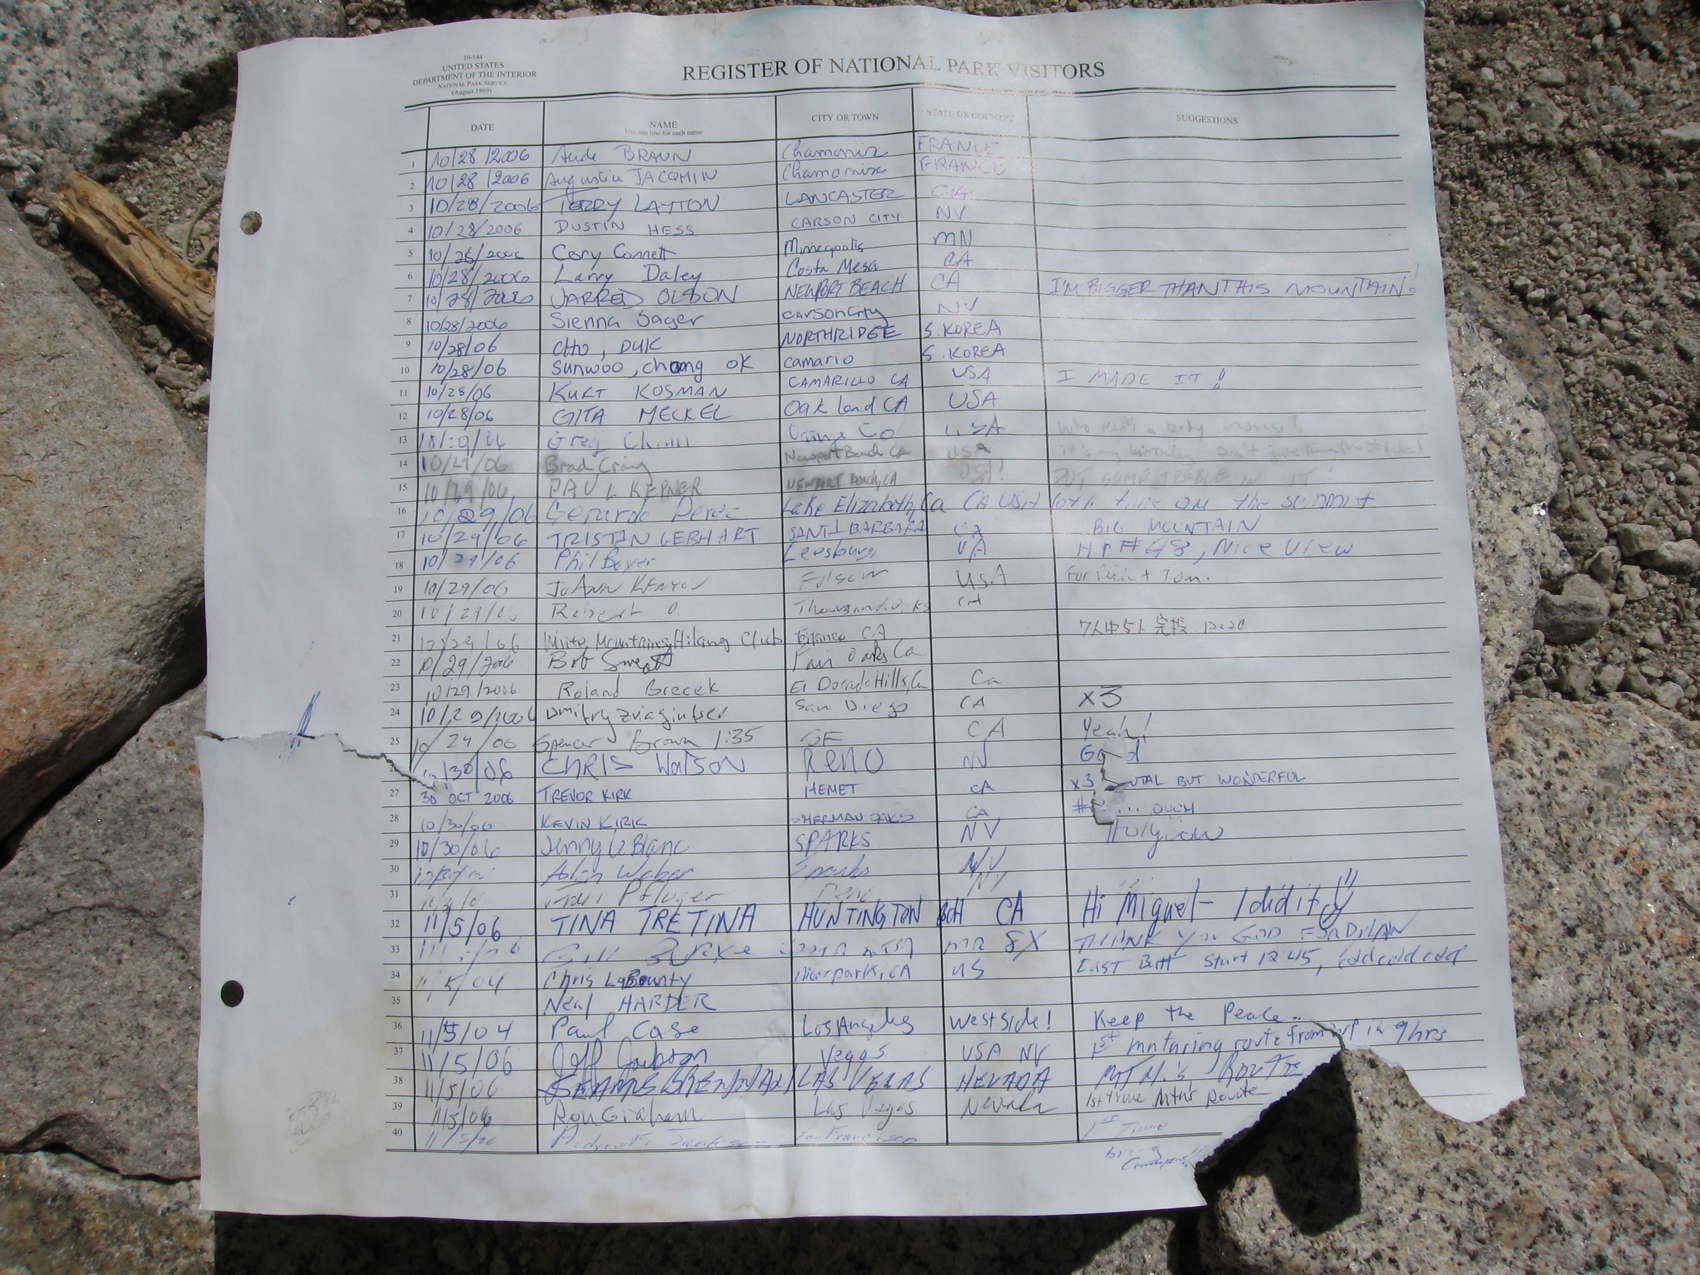 10-144
UNITED STATES
DEPARTMENT OF THE INTERIOR
NATIONAL PARK SERVICE
(August 1969)
REGISTER OF NATIONAL PARK VISITORS
DATE NAME CITY OR TOWN STATE OR COUNTRY SUGGESTIONS
Use one line for each name
1 10/28/2006 Aude BRAUN Chamonix FRANCE
2 10/28/2006 Augustin JACQMIN Chamonix FRANCE
3 10/28/2006 TERRY LAYTON LANCASTER CA
4 10/28/2006 DUSTIN HESS CARSON CITY NV
5 Cory Connett Minneapolis MN
6 10/28/2006 Larry Daley Costa Mesa CA
7 10/28/2006 JARRED OLSON NEWPORT BEACH CA I'M BIGGER THAN THIS MOUNTAIN!
8 10/28/2006 Sienna Sager CARSON CITY NV
9 10/28/06 CHO, DUK NORTHRIDGE S. KOREA
10 10/28/06 Sunwoo, chong ok camario S. KOREA
11 10/28/06 KURT KOSMAN CAMARILLO CA USA I MADE IT!
12 10/28/06 GITA MECKEL Oakland CA USA
13 Greg Orange Co USA
14 10/29/06 Brad Craig Newport Beach CA USA
15 10/29/06 PAUL KEPNER NEWPORT Beach, CA
16 10/29/06 Gerardo Perez Lake Elizabeth, Ca CA USA time on the summit
17 10/29/06 TRISTAN GEBHART SANTA BARBARA CA BIG MOUNTAIN
18 10/29/06 Phil Beyer Leesburg VA HP #48, Nice View
19 10/29/06 JoAnn Folsom USA For
20 10/29/06 Robert O. Thousand Oaks CA
21 White Mountaing Hiking Club CA
22 10/29/2006 Bob Sweatt Fair Oaks Ca
23 10/29/2006 Roland Brecek El Dorado Hills, Ca Ca
24 10/29/2006 Dmitry Zviagintsev San Diego CA x3
25 10/29/06 Spencer Brown 1:35 SF CA Yeah!
/30/06 CHRIS WATSON RENO NV Good
27 30 OCT 2006 TREVOR KIRK HEMET CA x3 TAL BUT WONDERFUL
28 10/30/06 KEVIN KIRK SHERMAN OAKS CA ... OUCH
29 10/30/06 Jenny LeBlanc SPARKS NV Holy cow
30 Alan Weber Sparks NV
31 Pfluger NV
32 11/5/06 TINA TRETINA HUNTINGTON BCH CA Hi Miguel - I did it!!!
33 8X THANK YOU GOD FOR DYLAN
34 Chris LaBounty US East Butt Start 12:45, cold cold cold
35 Neal HARDER
36 11/5/04 Paul Case Los Angeles West Side! Keep the Peace..
37 11/5/06 Jeff Jackson Vegas USA NV 1st mntring route from 9hrs
38 11/5/06 SEAMUS BRENNAN LAS VEGAS NEVADA MTN.'s ROUTE
39 11/5/06 Ron Graham Las Vegas Nevada 1st time Mtn's Route
40 San Francisco 1st Time